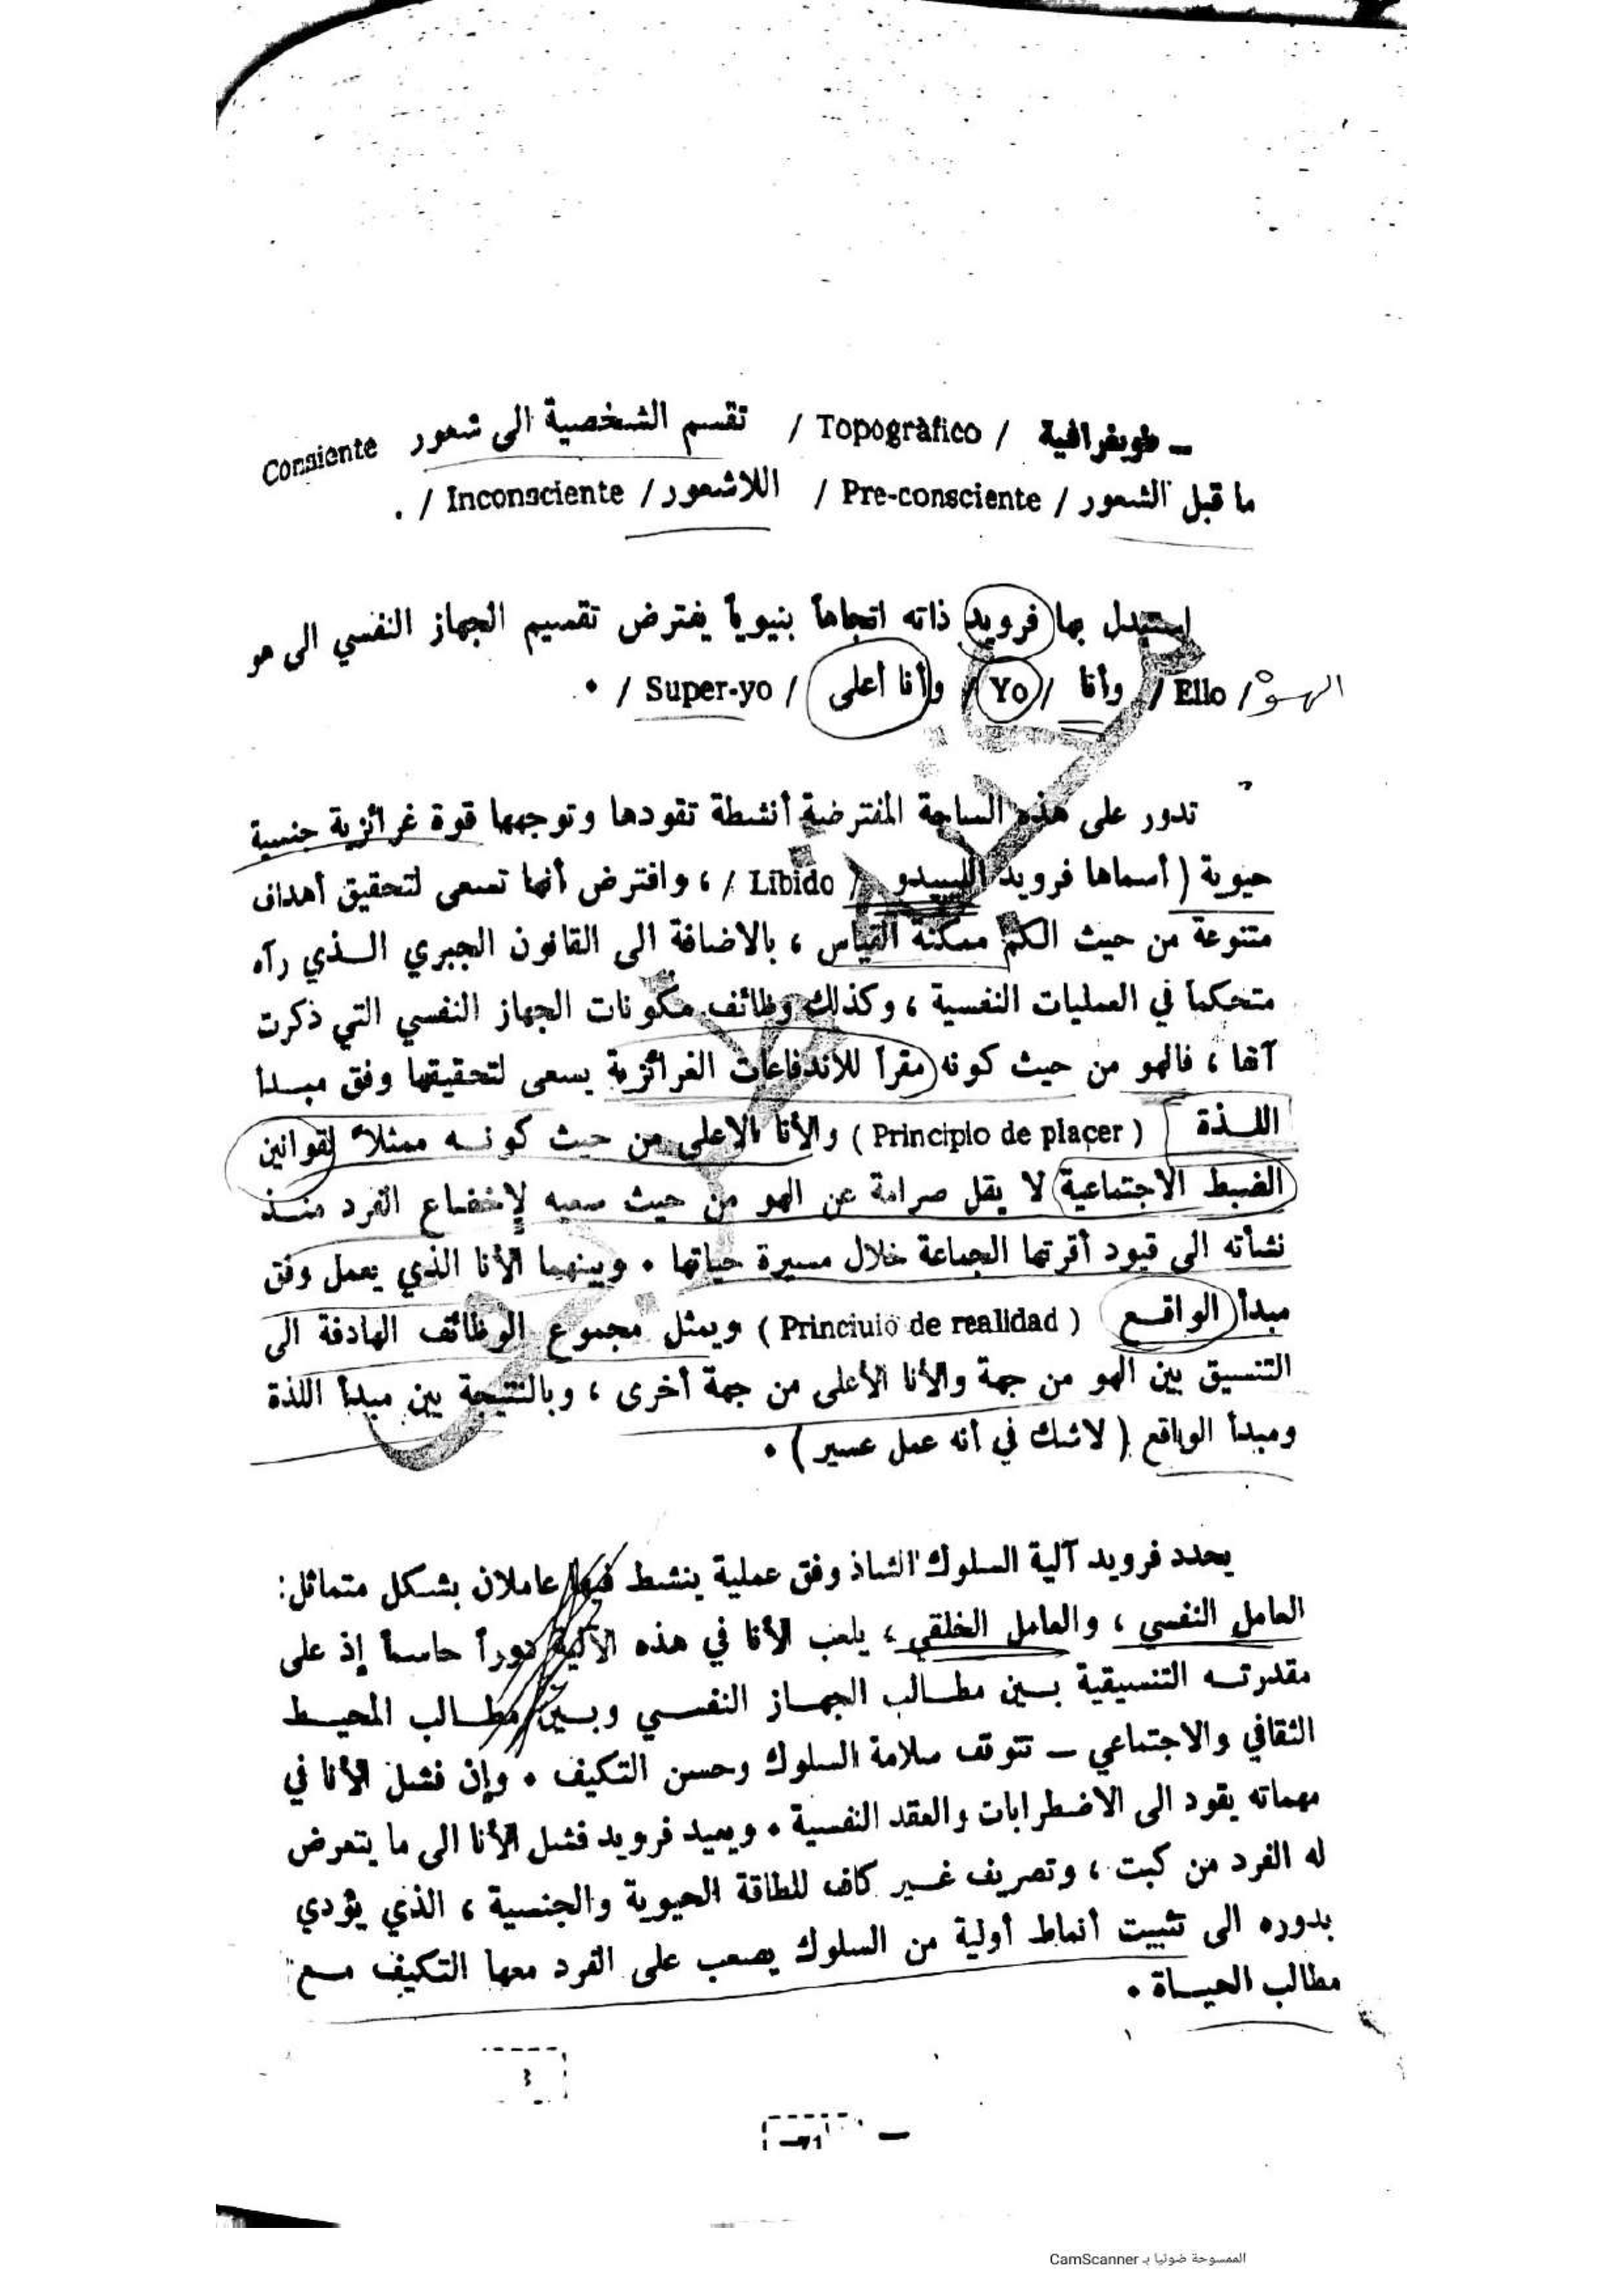 ــ طوبغرافية / Topogràfico / تقسم الشخصية الى شعور Consiente
ما قبل الشعور / Pre-consciente / اللاشعور / Inconsciente / .
استبدل بها فرويد ذاته اتجاهاً بنيوياً يفترض تقسيم الجهاز النفسي الى هو
الهوْ / Ello / وأنا / Yo / وأنا أعلى / Super-yo / •
تدور على هذه الساحة المفترضة أنشطة تقودها وتوجهها قوة غرائزية جنسية
حيوية ( أسماها فرويد الليبيدو / Libido / ، وافترض أنها تسعى لتحقيق أهداف
متنوعة من حيث الكم ممكنة القياس ، بالاضافة الى القانون الجبري الــذي رآه
متحكماً في العمليات النفسية ، وكذلك وظائف مكونات الجهاز النفسي التي ذكرت
آنفا ، فالهو من حيث كونه مقراً للاندفاعات الغرائزية يسعى لتحقيقها وفق مبــدأ
اللــذة ( Principio de placer ) والأنا الاعلى من حيث كونــه ممثلاً لقوانين
الضبط الاجتماعية لا يقل صرامة عن الهو من حيث سعيه لإخضاع الفرد منــذ
نشأته الى قيود أقرتها الجماعة خلال مسيرة حياتها • وبينهما الأنا الذي يعمل وفق
مبدأ الواقــع ( Princiuio de realidad ) ويمثل مجموع الوظائف الهادفة الى
التنسيق بين الهو من جهة والأنا الأعلى من جهة أخرى ، وبالنتيجة بين مبدأ اللذة
ومبدأ الواقع ( لاشك في أنه عمل عسير ) •
يحدد فرويد آلية السلوك الشاذ وفق عملية ينشط فيها عاملان بشكل متماثل:
العامل النفسي ، والعامل الخلقي ، يلعب الأنا في هذه الآلية دوراً حاسماً إذ على
مقدرتــه التنسيقية بــين مطــالب الجهــاز النفســي وبــين مطــالب المحيــط
الثقافي والاجتماعي ــ تتوقف سلامة السلوك وحسن التكيف • وإن فشل الأنا في
مهماته يقود الى الاضطرابات والعقد النفسية • ويعيد فرويد فشل الأنا الى ما يتعرض
له الفرد من كبت ، وتصريف غــير كاف للطاقة الحيوية والجنسية ، الذي يؤدي
بدوره الى تثبيت أنماط أولية من السلوك يصعب على الفرد معها التكيف مــع
مطالب الحيــاة •
الممسوحة ضوئيا بـ CamScanner